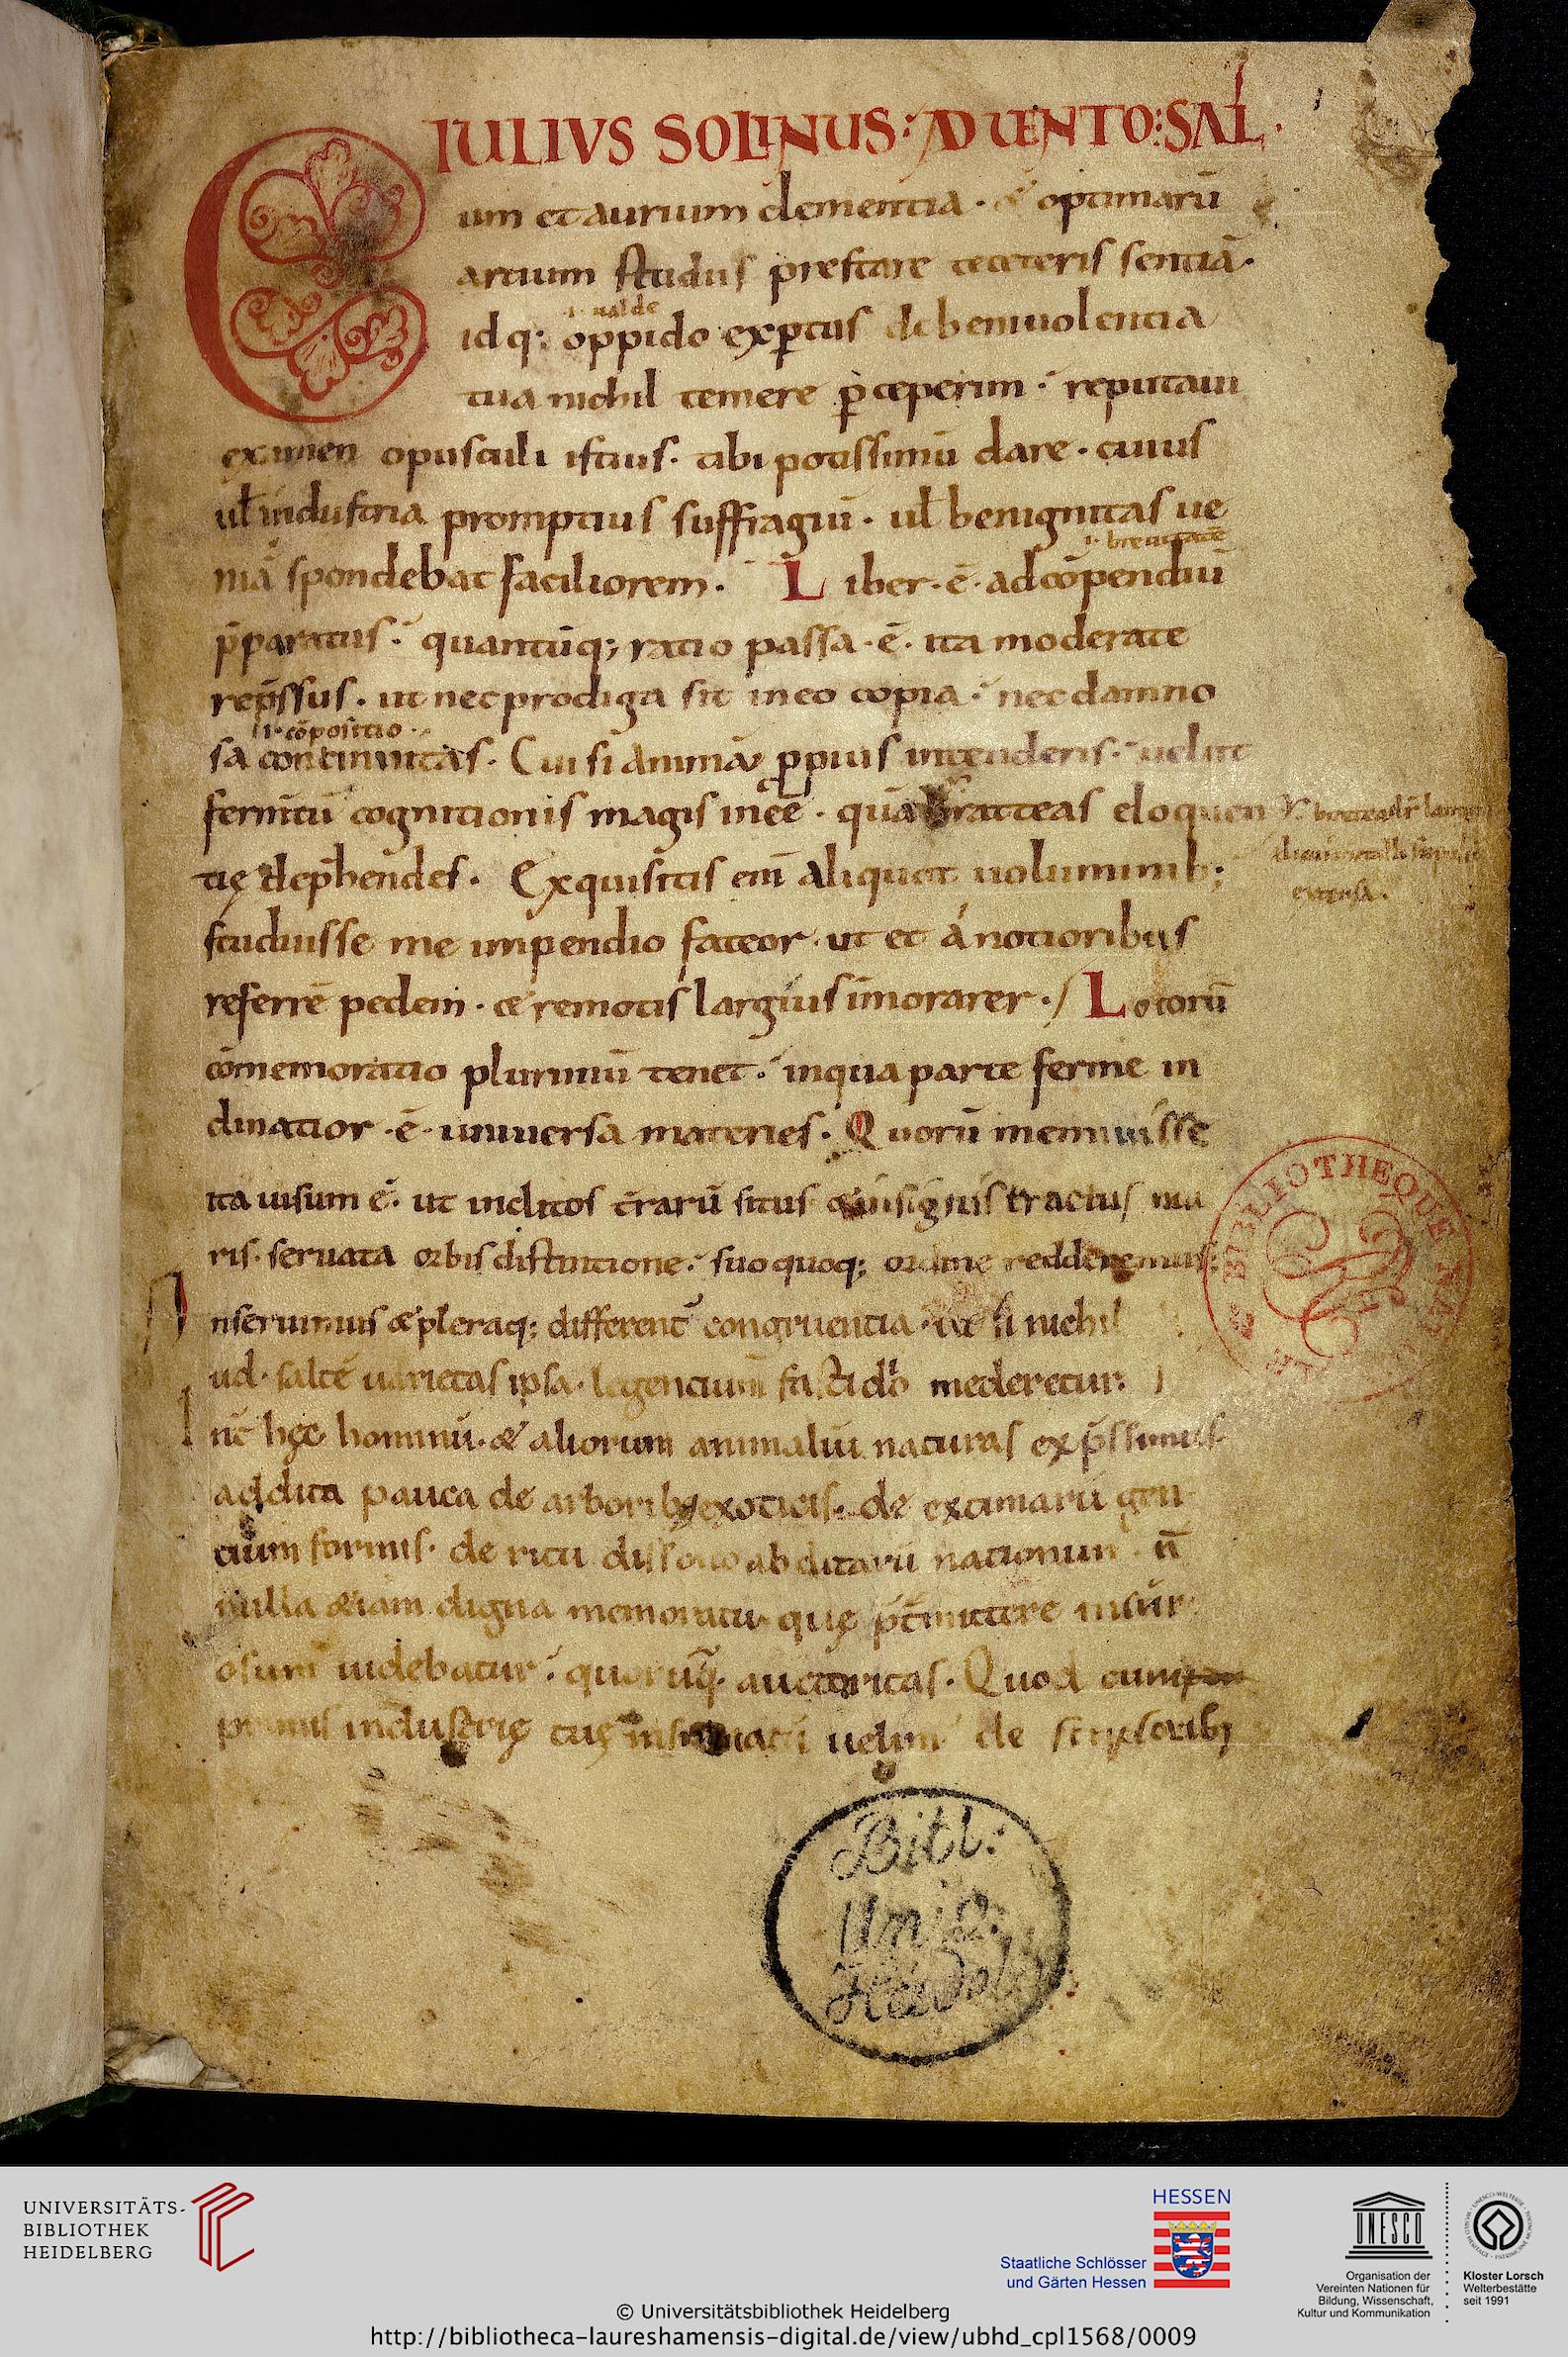 IULIVS SOLINUS: ADUENTO: SAL.
Cum et aurium clementia · & optimarū
artium studiis prestare te ceteris sentiā·
.i. ualde
idq; oppido exꝑtus de beniuolentia
tua nichil temere p̄ceperim · reputaui
examen opusculi istius · tibi potissimū dare · cuius
uł industria promptius suffragiū · uł benignitas ue
.i. breuitatē
niā spondebat faciliorem. Liber · ē · ad cōpendiū
p̄paratus · quantūq; ratio passa · ē · ita moderate
rep̄ssus · ut nec prodiga sit in eo copia · nec damno
.i. cōpositio ·
sa continuitas. Cui si animū ꝓpius intenderis · uelut
fermtū cognitionis magis inēē · quā bratteas eloquen
tię dep̄hendes. Exquisitis eni aliquot uoluminib;
studuisse me inpendio fateor · ut et á notioribus
referrē pedem · & remotis largius īmorarer · Locorū
cōmemoratio plurimū tenet · in qua parte ferme in
clinatior · ē · uniuersa materies. Quorū meminisse
ita uisum ē · ut inclitos t̄rarū situs & insignis tractus ma
ris · seruata orbis distinctione · suo quoq; ordine redderemus:
Inseruimus & pleraq; different̄ congruentia · ut si nichil
ud · saltē uarietas ipsa · legentium fastidio mederetur.
Int̄ hęc hominū · & aliorum animaliū naturas exp̄ssimus
addita pauca de arborib; exoticis · de extimarū gen
tium formis · de ritu dissono abditarū nationum · n̄
nulla &iam digna memoratu · quę p̄t̄mittere incur
osum uidebatur · quorūq · auctoritas. Quod cum
primis industrię tuę insinuatū uelim de scriptorib;
exensa.
BIBLIOTHEQUE
Bibl:
Univ:
Heidelb
UNIVERSITÄTS-
BIBLIOTHEK
HEIDELBERG
HESSEN
Staatliche Schlösser
und Gärten Hessen
UNESCO
Organisation der
Vereinten Nationen für
Bildung, Wissenschaft,
Kultur und Kommunikation
Kloster Lorsch
Welterbestätte
seit 1991
© Universitätsbibliothek Heidelberg
http://bibliotheca-laureshamensis-digital.de/view/ubhd_cpl1568/0009